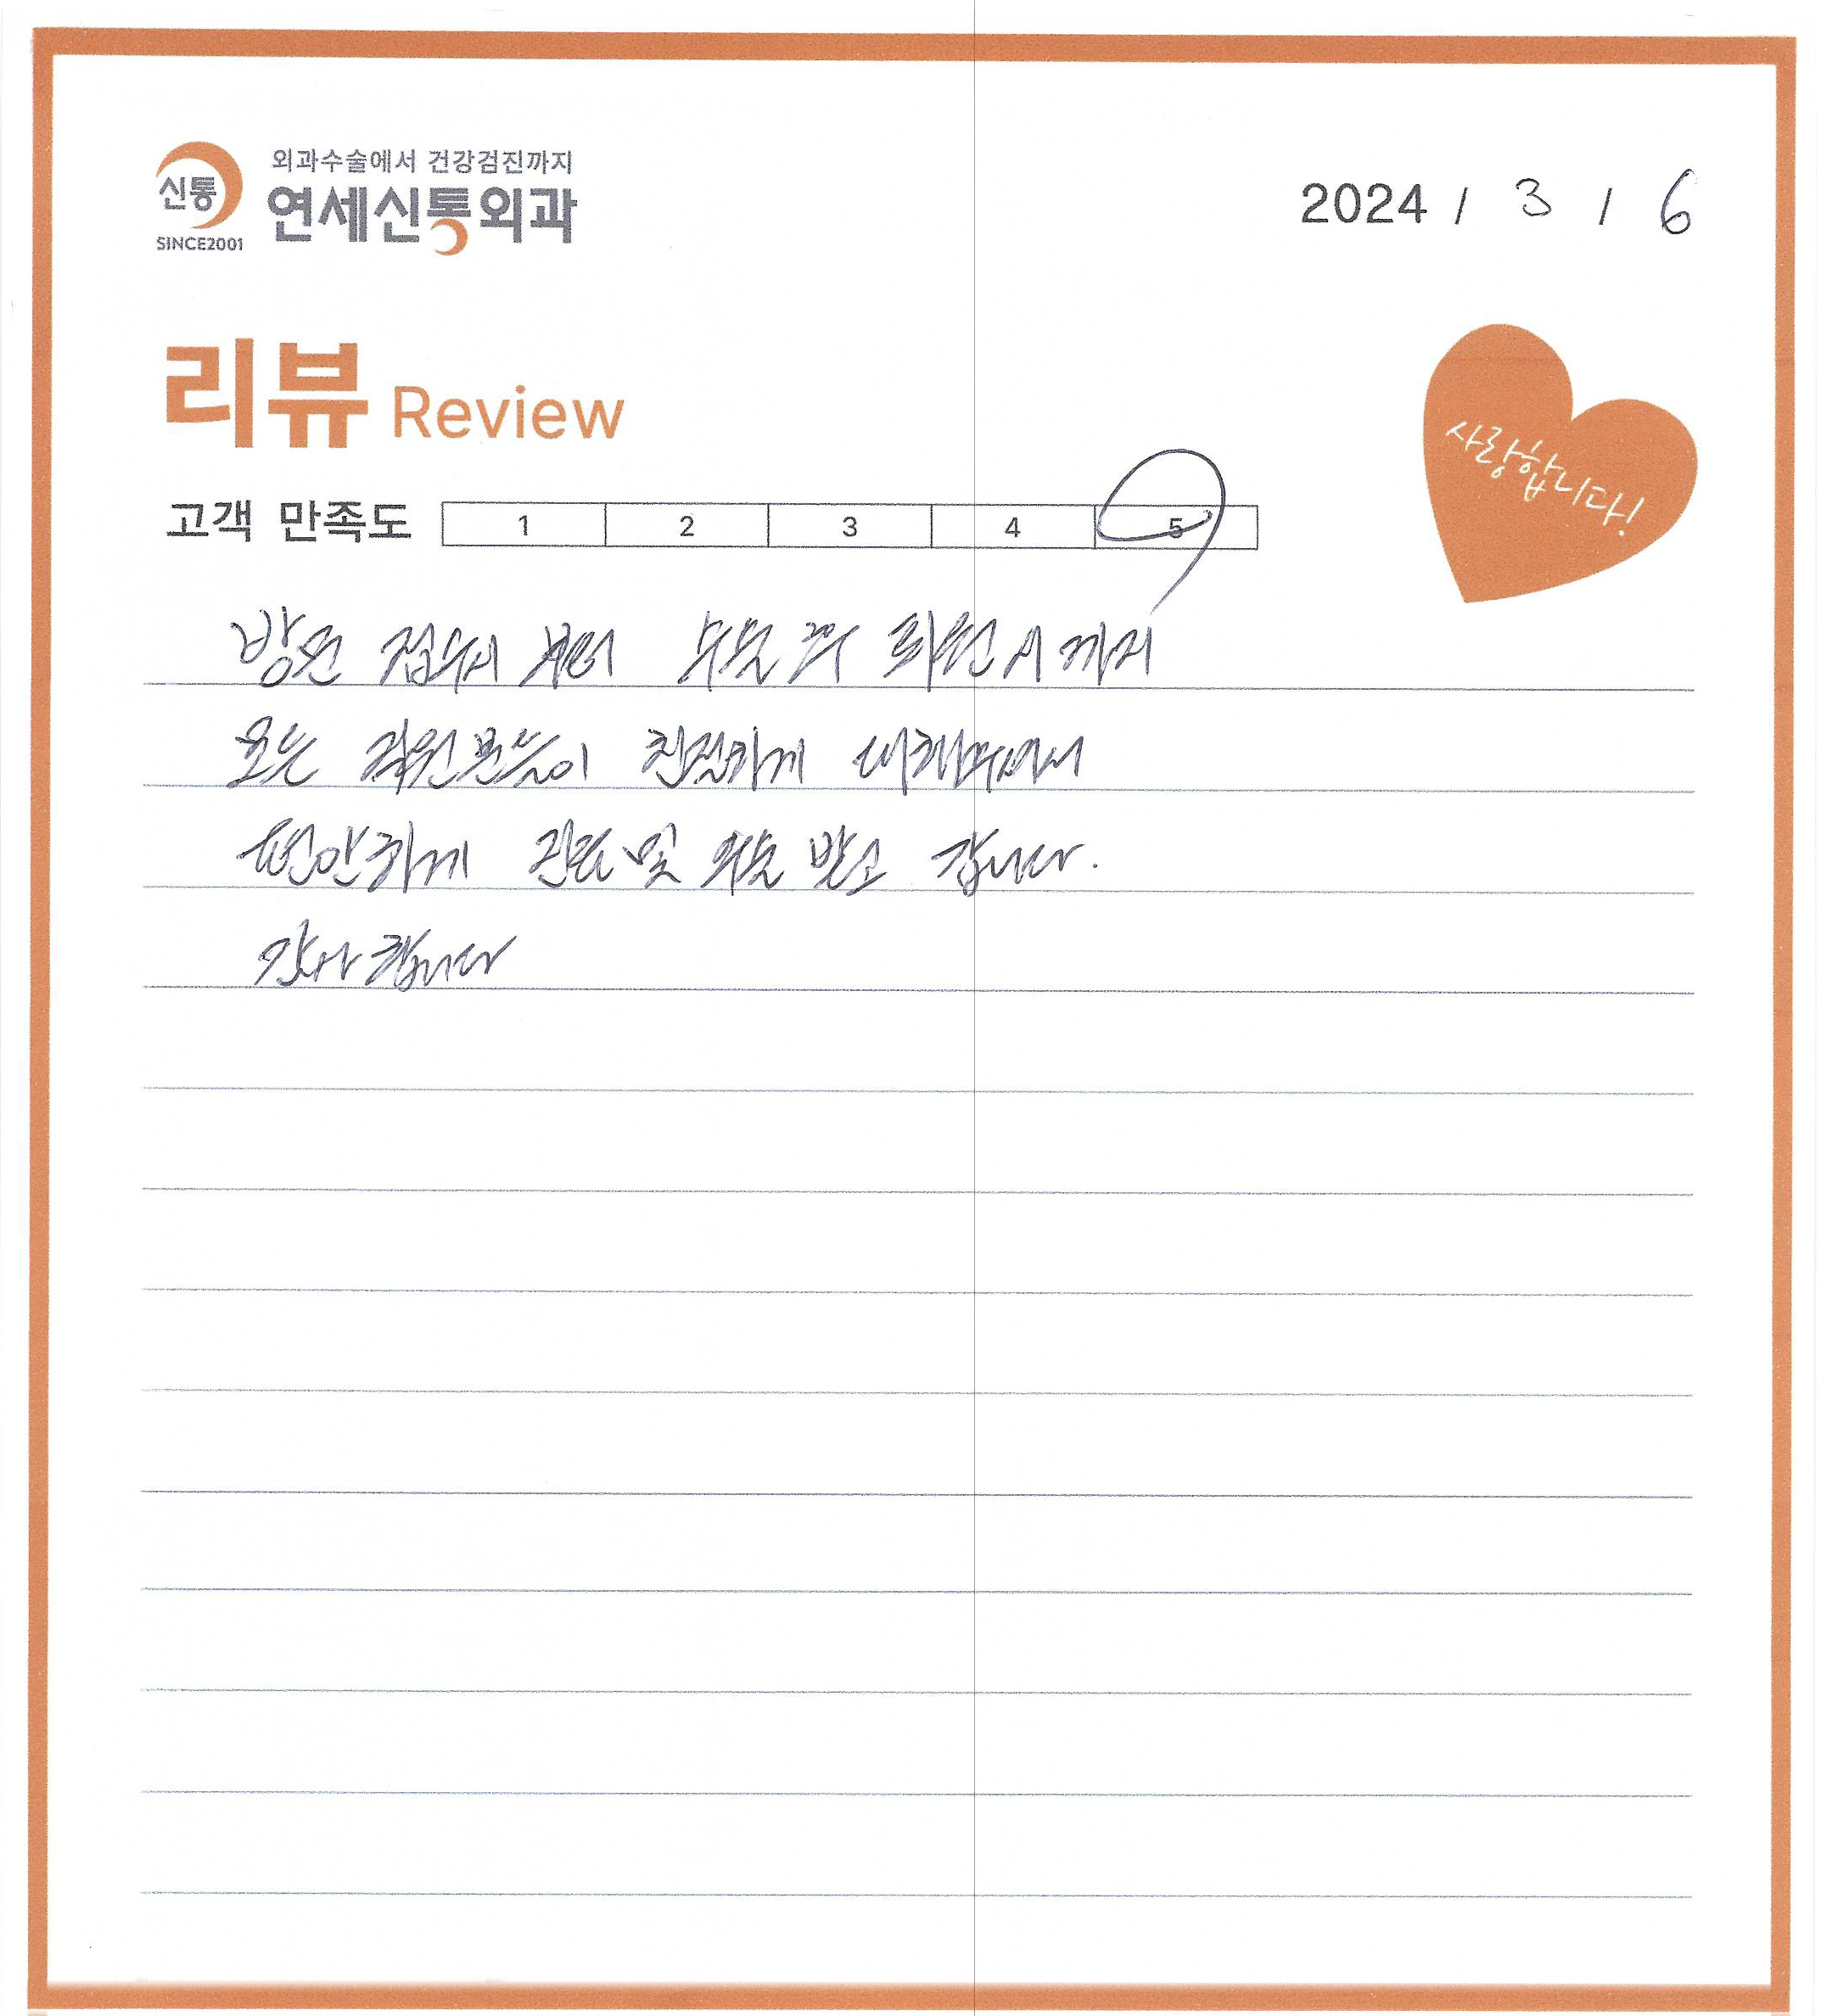 신통
SINCE2001
외과수술에서 건강검진까지
연세신통외과
2024 / 3 / 6
리뷰 Review
사랑합니다!
고객 만족도 1 2 3 4 5
방문 접수시 부터 수술 후 퇴원시까지
모든 직원분들이 친절하게 대해주셔서
편안하게 진료 및 수술 받고 갑니다.
감사합니다